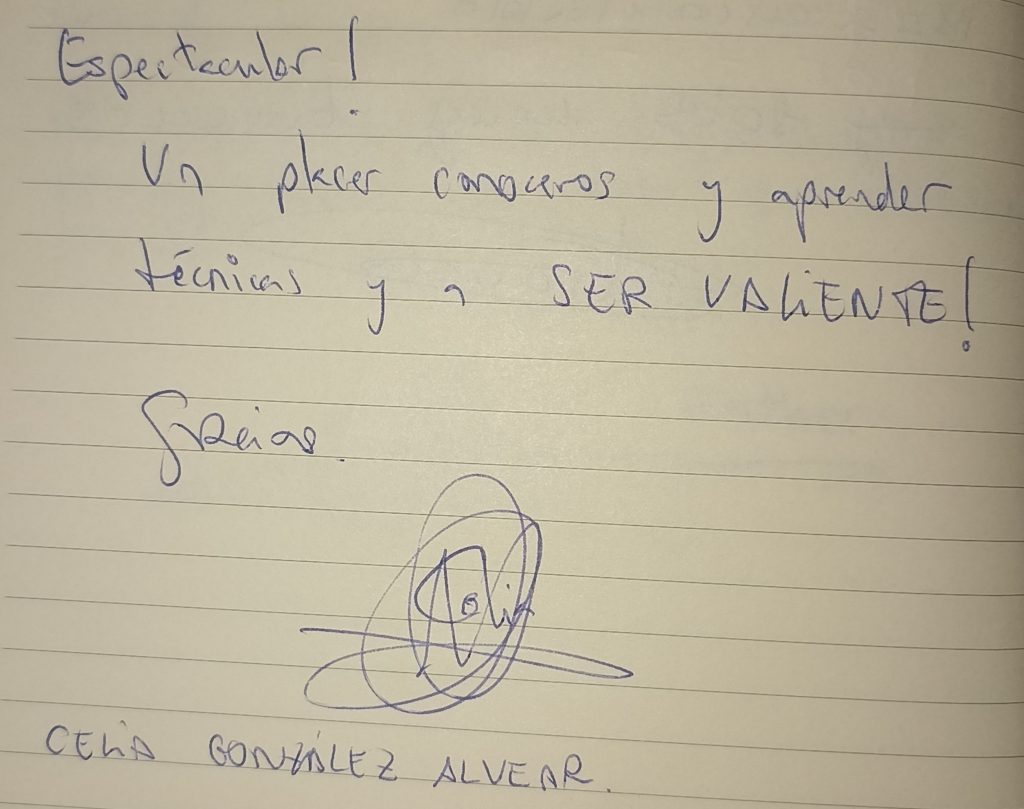 Espectacular!
Un placer conoceros y aprender
técnicas y a SER VALIENTE!
Gracias.
Celia
CELIA GONZÁLEZ ALVEAR.